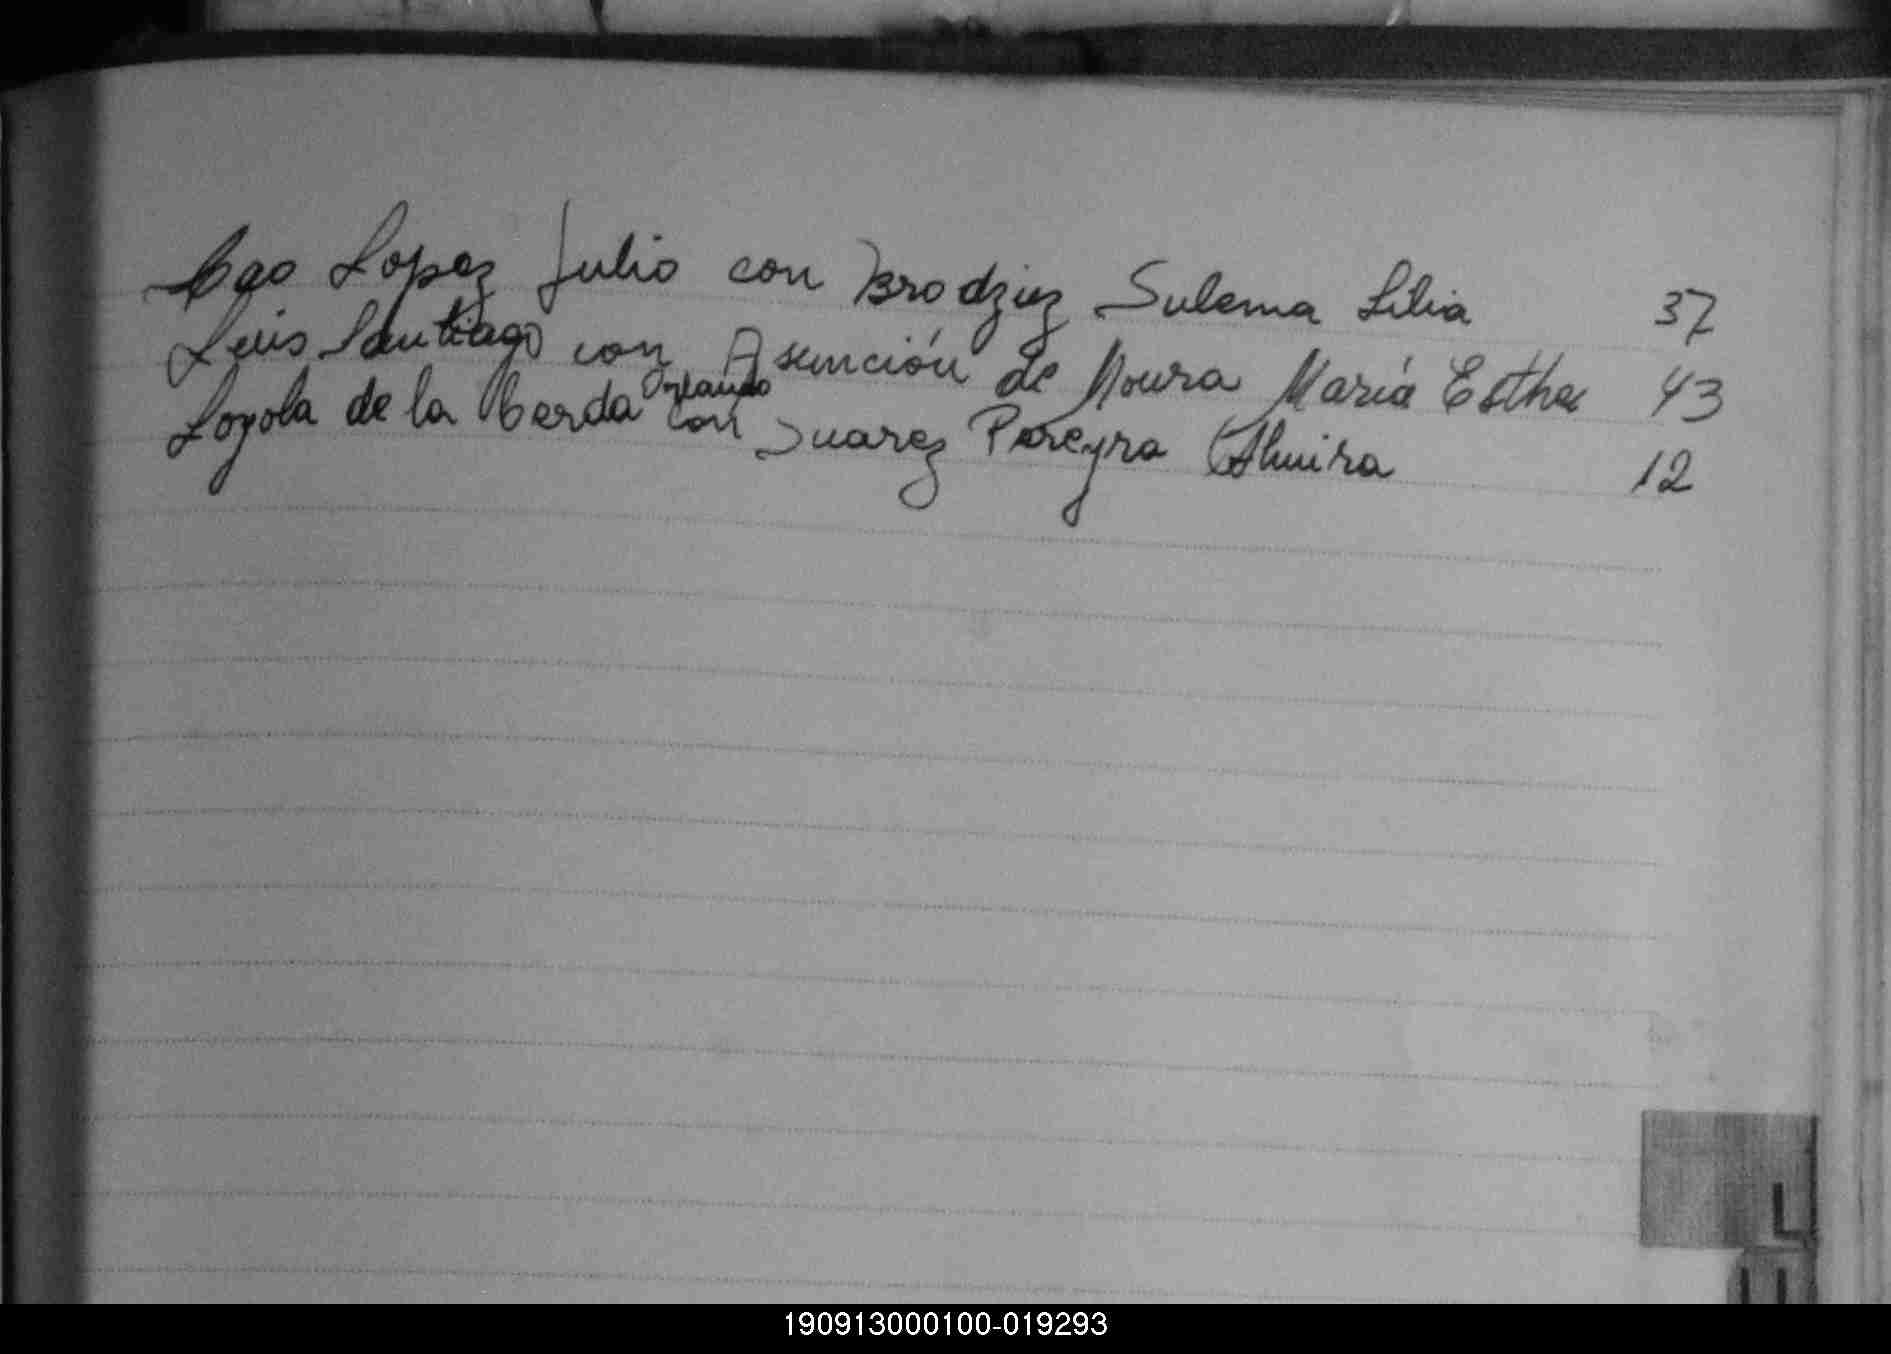 Cao Lopez Julio con Brodziuz Sulema Lilia 37
Luis Santiago con Asunción de Moura María Esther 43
Loyola de la Cerda Orlando con Suarez Pereyra Elmira 12
L
190913000100-019293